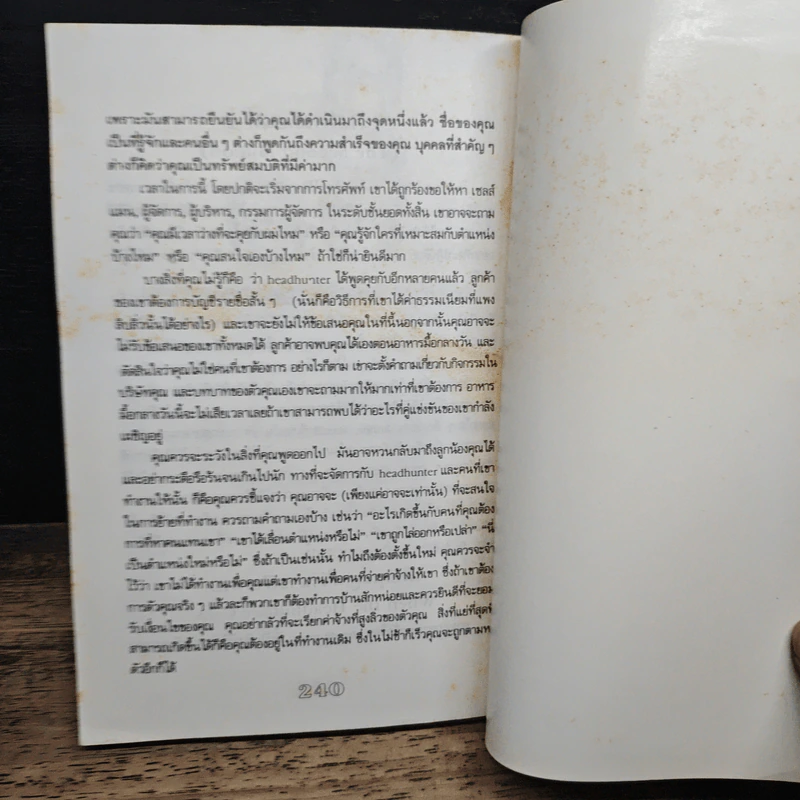 เพราะมันสามารถยืนยันได้ว่าคุณได้ดำเนินมาถึงจุดหนึ่งแล้ว ชื่อของคุณ
เป็นที่รู้จักและคนอื่น ๆ ต่างก็พูดกันถึงความสำเร็จของคุณ บุคคลที่สำคัญ ๆ
ต่างก็คิดว่าคุณเป็นทรัพย์สมบัติที่มีค่ามาก
เวลาในการนี้ โดยปกติจะเริ่มจากการโทรศัพท์ เขาได้ถูกร้องขอให้หา เซลส์
แมน, ผู้จัดการ, ผู้บริหาร, กรรมการผู้จัดการ ในระดับชั้นยอดทั้งสิ้น เขาอาจจะถาม
คุณว่า “คุณมีเวลาว่างที่จะคุยกับผมไหม” หรือ “คุณรู้จักใครที่เหมาะสมกับตำแหน่ง
บ้างไหม” หรือ “คุณสนใจเองบ้างไหม” ถ้าใช่ก็น่ายินดีมาก
บางสิ่งที่คุณไม่รู้ก็คือ ว่า headhunter ได้พูดคุยกับอีกหลายคนแล้ว ลูกค้า
ของเขาต้องการบัญชีรายชื่อสั้น ๆ (นั่นก็คือวิธีการที่เขาได้ค่าธรรมเนียมที่แพง
ลิบลิ่วนั้นได้อย่างไร) และเขาจะยังไม่ให้ข้อเสนอคุณในที่นี้นอกจากนั้นคุณอาจจะ
ไม่รับข้อเสนอของเขาทั้งหมดได้ ลูกค้าอาจพบคุณได้เองตอนอาหารมื้อกลางวัน และ
ตัดสินใจว่าคุณไม่ใช่คนที่เขาต้องการ อย่างไรก็ตาม เขาจะตั้งคำถามเกี่ยวกับกิจกรรมใน
บริษัทคุณ และบทบาทของตัวคุณเองเขาจะถามมากให้มากเท่าที่เขาต้องการ อาหาร
มื้อกลางวันนี้จะไม่เสียเวลาเลยถ้าเขาสามารถพบได้ว่าอะไรที่คู่แข่งขันของเขากำลัง
เผชิญอยู่
คุณควรจะระวังในสิ่งที่คุณพูดออกไป มันอาจหวนกลับมาถึงลูกน้องคุณได้
และอย่ากระตือรือร้นจนเกินไปนัก ทางที่จะจัดการกับ headhunter และคนที่เขา
ทำงานให้นั้น ก็คือคุณควรชี้แจงว่า คุณอาจจะ (เพียงแค่อาจจะเท่านั้น) ที่จะสนใจ
ในการย้ายที่ทำงาน ควรถามคำถามเองบ้าง เช่นว่า “อะไรเกิดขึ้นกับคนที่คุณต้อง
การที่หาคนแทนเขา” “เขาได้เลื่อนตำแหน่งหรือไม่” “เขาถูกไล่ออกหรือเปล่า” “นี่
เป็นตำแหน่งใหม่หรือไม่” ซึ่งถ้าเป็นเช่นนั้น ทำไมถึงต้องตั้งขึ้นใหม่ คุณควรจะจำ
ไว้ว่า เขาไม่ได้ทำงานเพื่อคุณแต่เขาทำงานเพื่อคนที่จ่ายค่าจ้างให้เขา ซึ่งถ้าเขาต้อง
การตัวคุณจริง ๆ แล้วละก็พวกเขาก็ต้องทำการบ้านสักหน่อยและควรยินดีที่จะยอม
รับเงื่อนไขของคุณ คุณอย่ากลัวที่จะเรียกค่าจ้างที่สูงลิ่วของตัวคุณ สิ่งที่แย่ที่สุดที่
สามารถเกิดขึ้นได้ก็คือคุณต้องอยู่ในที่ทำงานเดิม ซึ่งในไม่ช้าก็เร็วคุณจะถูกตามห
ตัวอีกก็ได้
240